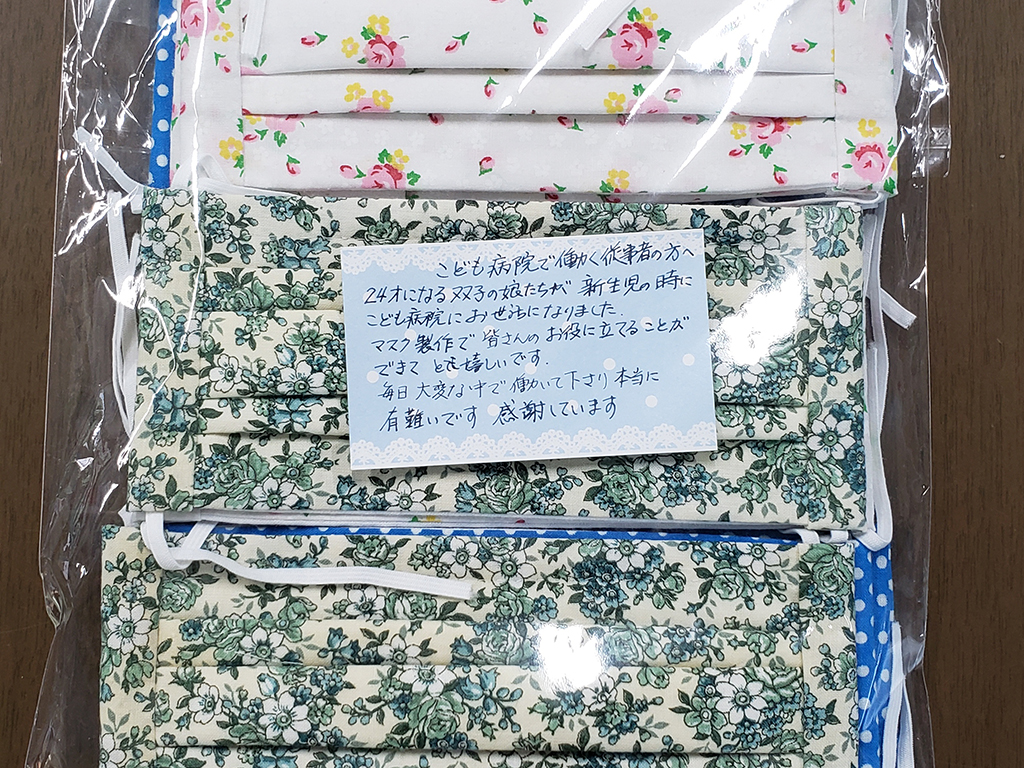 こども病院で働く従事者の方へ
24才になる双子の娘たちが 新生児の時に
こども病院にお世話になりました.
マスク製作で 皆さんのお役に立てることが
できて とても嬉しいです.
毎日 大変な中で働いて下さり 本当に
有難いです 感謝しています